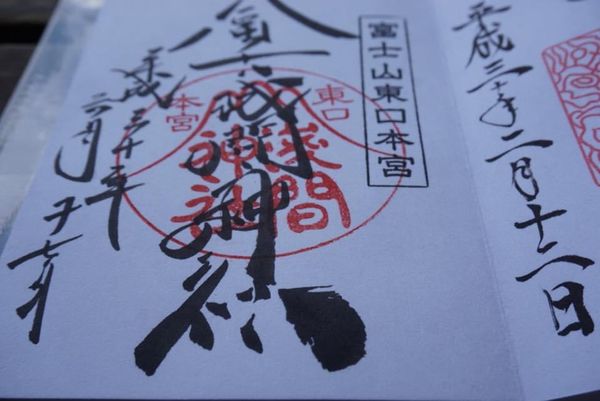 平成三十年二月十二日
富士山東口本宮
東口
本宮
淺間
神社
冨士浅間神社
平成三十年